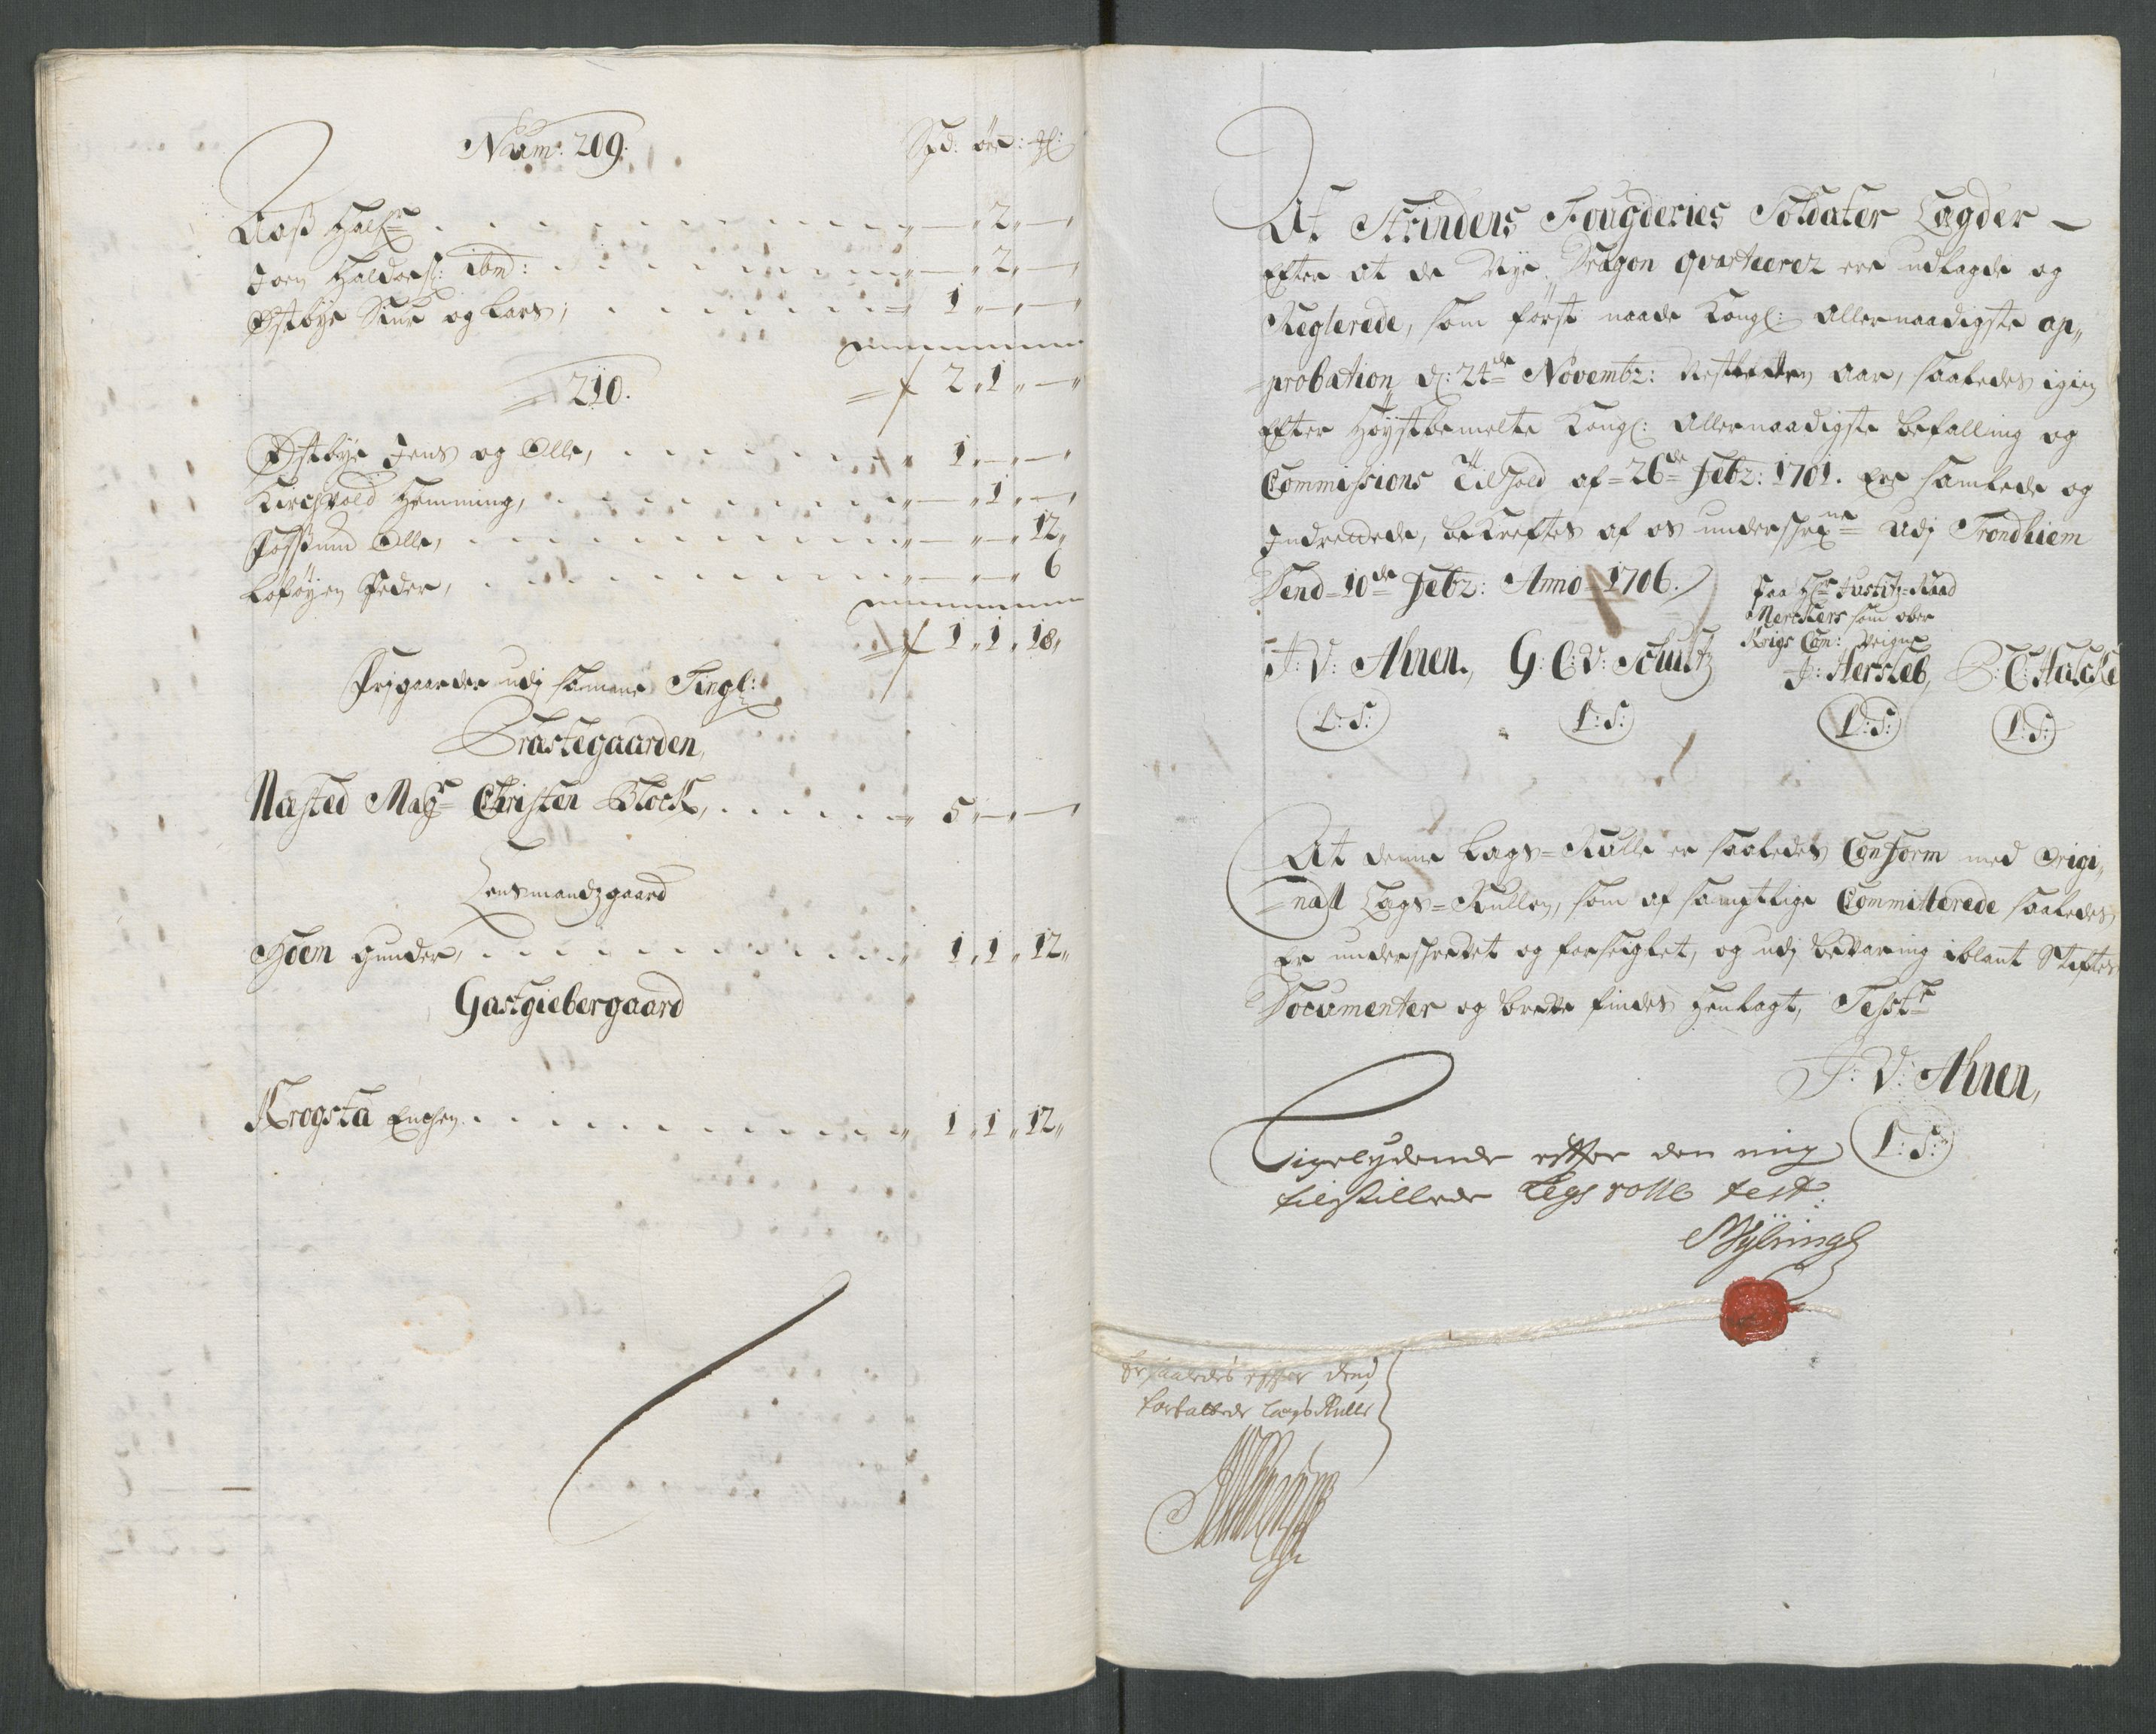 Num: 209.
Spd: öre: :
Aas Half . . . 2 —
Joen Haldors: ibm: . . . 2 —
Østbÿe Siur og Lars; . . . 1 — —
2 1 —
210.
Østbÿe Jens og Olle, . . . 1 — —
Kirchvold Hemming, . . . 1 —
Olle, . . . 12
Peder, . . . 6
1 1 18
Frÿgaarder udj samme Tingl:
Præstegaarden,
Næsted Magr Christen Block, . . . 5 — —
Lensmandzgaard
Moen Gunder, . . . 1 1 12
Gastgiebergaard
Krogsta . . . 1 1 12
At Strindens Fougderies Soldater Lagder
Efter at de Nÿe Dragon qvarteerer ere udlagde og
Reglerede, som först naade Kongl: Allernaadigste ap,,
probation d: 24de Novembr: aar, saaledes igien
Efter Höÿstbemelte Kongl: Allernaadigste befalling og
Commissions Tilhold af 26de Febr: 1701. Ere samlede og
Indrettede, bekreftes af os underschrne Udj Trondhiem
Dend 10de Febr: Anno 1706.
Paa Hr Justitz-Raad
Merckers som ober
Krigs Com: Veigne
J: V: Ahnen, G: C: V: Schultz J: Hersleb, C: Halcke
L: S: L: S: L: S: L: S:
At denne Lags-Rulle er saaledes Conform med Origi,
nall Lags-Rullen, som af samptlige Committerede saaledes
Er underschrevet og forseiglet, og udj bevaring iblant Stiftes
Documenter og breve findes henlagt, Testr
J: V: Ahnen,
L: S:
Ligelydende efter den mig
tilstillede Legs rolle test:
Er saaledes efter dend
forfattede Lægs Rulle